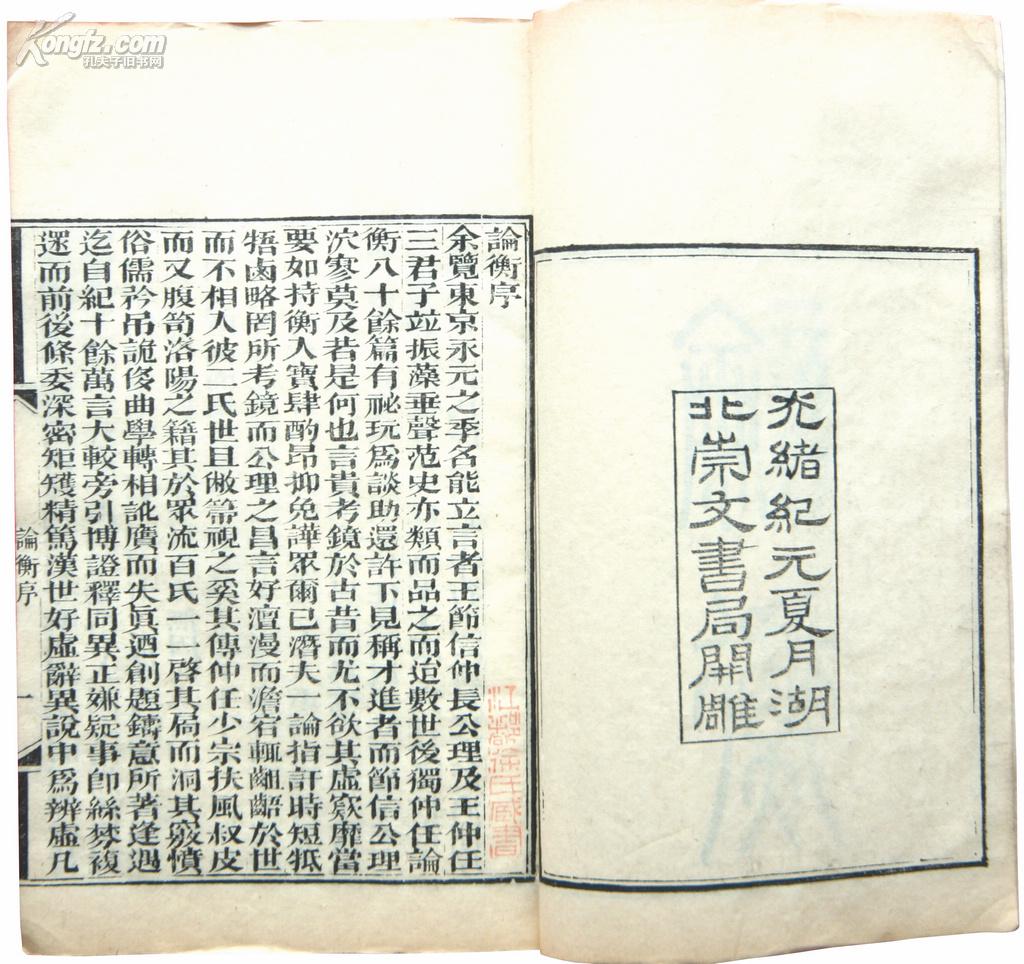 光緒紀元夏月湖
北崇文書局開雕
論衡序
余覽東京永元之季名能立言者王節信仲長公理及王仲任
三君子竝振藻垂聲范史亦類而品之而迨數世後獨仲任論
衡八十餘篇有祕玩爲談助還許下見稱才進者而節信公理
泬寥莫及若是何也言貴考鏡於古昔而尤不欲其虛窾靡當
要如持衡入寶肆酌昂抑免譁眾爾已潛夫一論指訐時短牴
牾鹵略罔所考鏡而公理之昌言好澶漫而澹宕輒齟齬於世
而不相入彼二氏世且敝帚視之奚其傳仲任少宗扶風叔皮
而又腹笥洛陽之籍其於眾流百氏一一啓其扃而洞其竅憤
俗儒矜吊詭侈曲學轉相訛贋而失眞迺創題鑄意所著逢遇
迄自紀十餘萬言大較旁引博證釋同異正嫌疑事卽絲棼複
遝而前後條委深密矩矱精篤漢世好虛辭異說中爲辨虛凡
論衡序
一
徐氏藏書
Kongfz.com
孔夫子旧书网